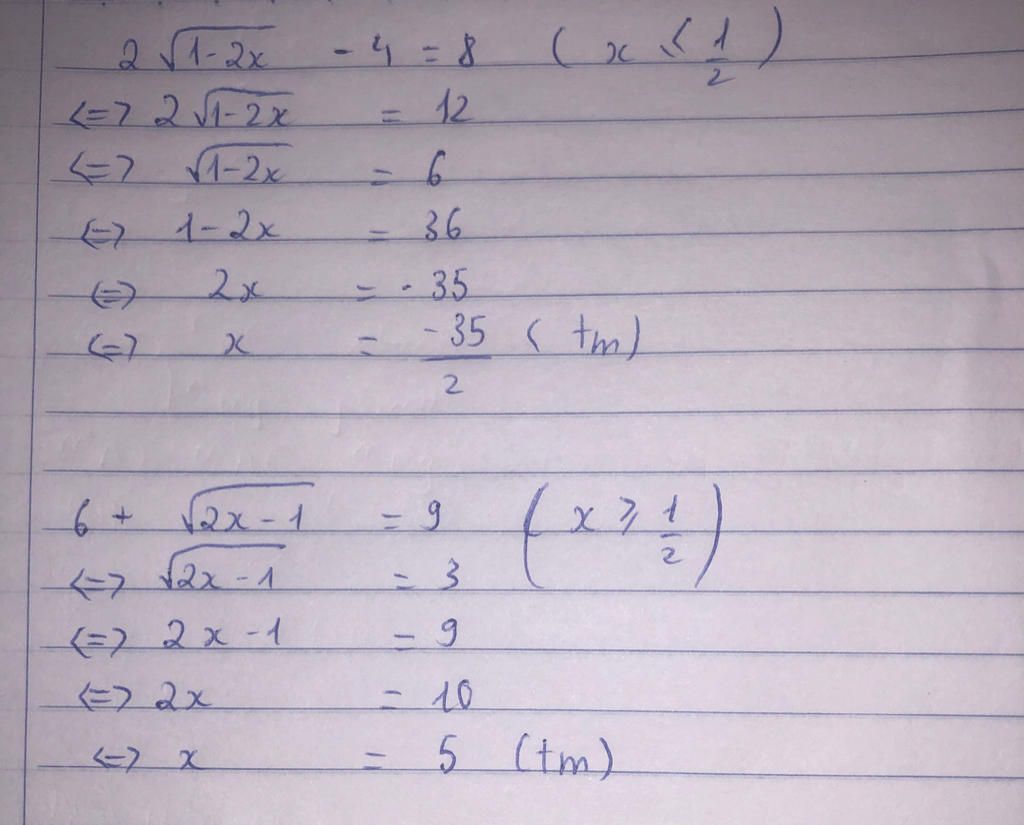 2 √(1-2x) - 4 = 8 ( x ≤ 1/2 )
<=> 2 √(1-2x) = 12
<=> √(1-2x) = 6
<=> 1-2x = 36
<=> 2x = -35
<=> x = -35/2 ( tm)
6 + √(2x-1) = 9 ( x ≥ 1/2 )
<=> √(2x-1) = 3
<=> 2x-1 = 9
<=> 2x = 10
<=> x = 5 (tm)